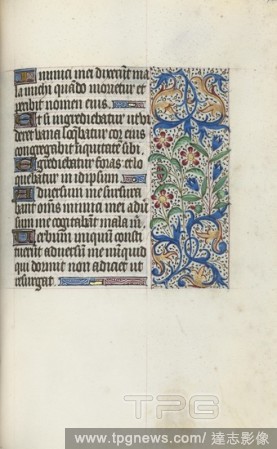 Inimici mei dixerunt ma
la michi quādo morietur et
peribit nomen eius.
Et si ingrediebatur ut vi
deret vana loq̄batur cor eius
congregabit iniquitatē sibi.
Egrediebatur foras et lo
quebatur in idipsum
Adversum me susurra
bant om̄s inimici mei adv̄
sum me cogitabāt mala m̄.
Verbum iniquū consti
tuerūt adversū me nūquid
qui dormit non adiciet ut
resurgat.
TPG
www.tpgnews.com/達志影像